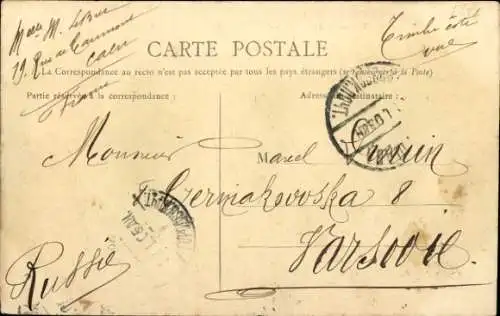 Melle M. Lebus
19, Rue de
Caen
France
Timbre côté
vue
CARTE POSTALE
La Correspondance au recto n'est pas acceptée par tous les pays étrangers (se renseigner à la Poste)
Partie réservée à la correspondance :
Adresse du destinataire :
Monsieur Marcel
Czerniakovoska 8
Varsovie
Russie